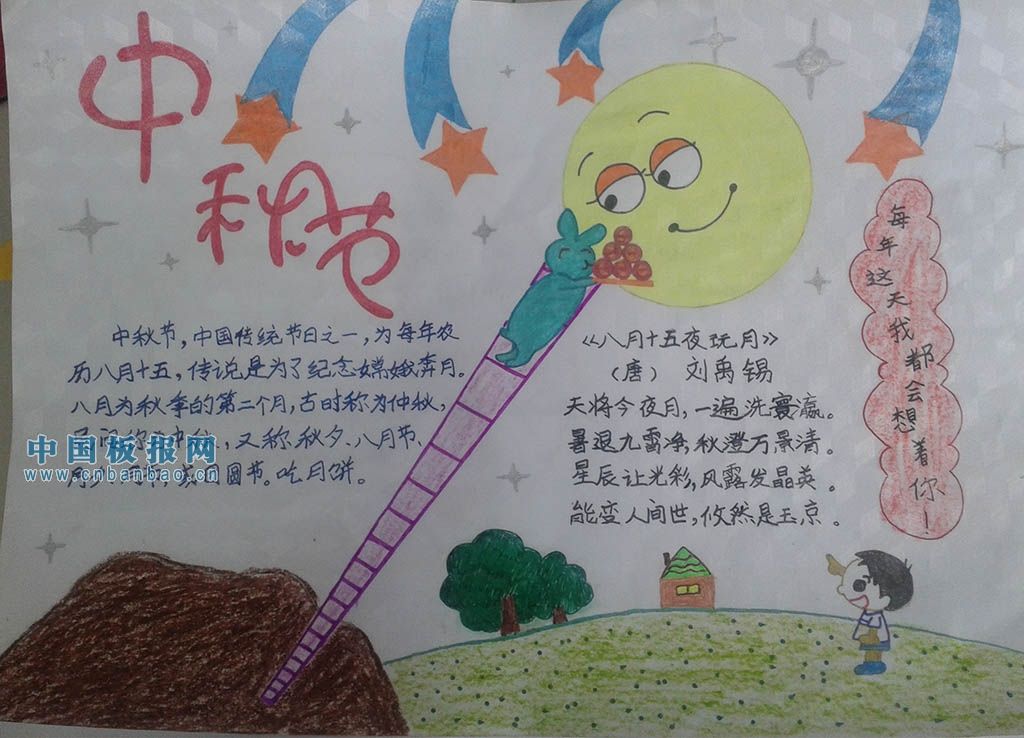 中秋节
中秋节，中国传统节日之一，为每年农
历八月十五，传说是为了纪念嫦娥奔月。
八月为秋季的第二个月，古时称为仲秋，
又称秋夕、八月节、
团圆节。吃月饼。
中国板报网
www.cnbanbao.cn
《八月十五夜玩月》
（唐） 刘禹锡
天将今夜月，一遍洗寰瀛。
暑退九霄净，秋澄万景清。
星辰让光彩，风露发晶英。
能变人间世，攸然是玉京。
每年这天我都会想着你！